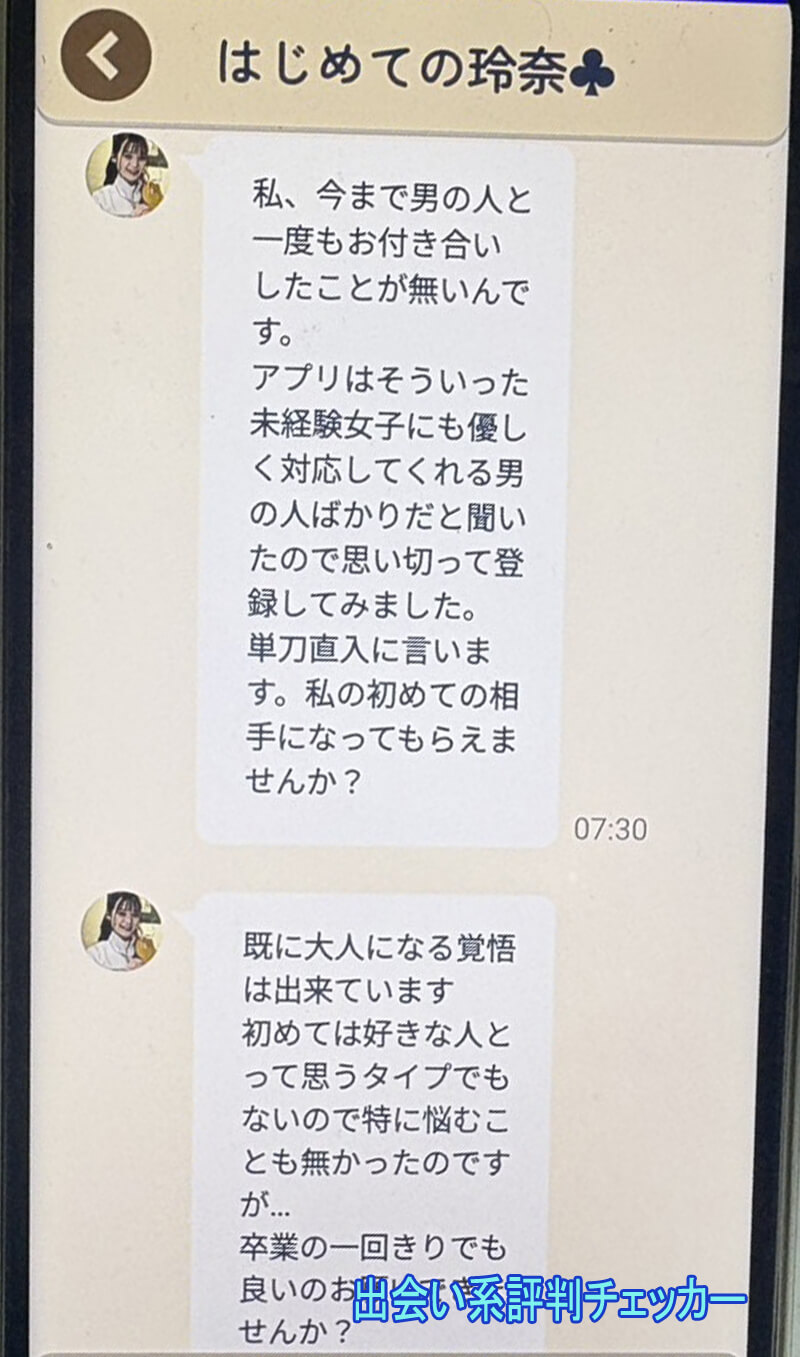 はじめての玲奈♣
私、今まで男の人と
一度もお付き合い
したことが無いんで
す。
アプリはそういった
未経験女子にも優し
く対応してくれる男
の人ばかりだと聞い
たので思い切って登
録してみました。
単刀直入に言いま
す。私の初めての相
手になってもらえま
せんか？
07:30
既に大人になる覚悟
は出来ています
初めては好きな人と
って思うタイプでも
ないので特に悩むこ
とも無かったのです
が...
卒業の一回きりでも
良いのお
せんか？
出会い系評判チェッカー